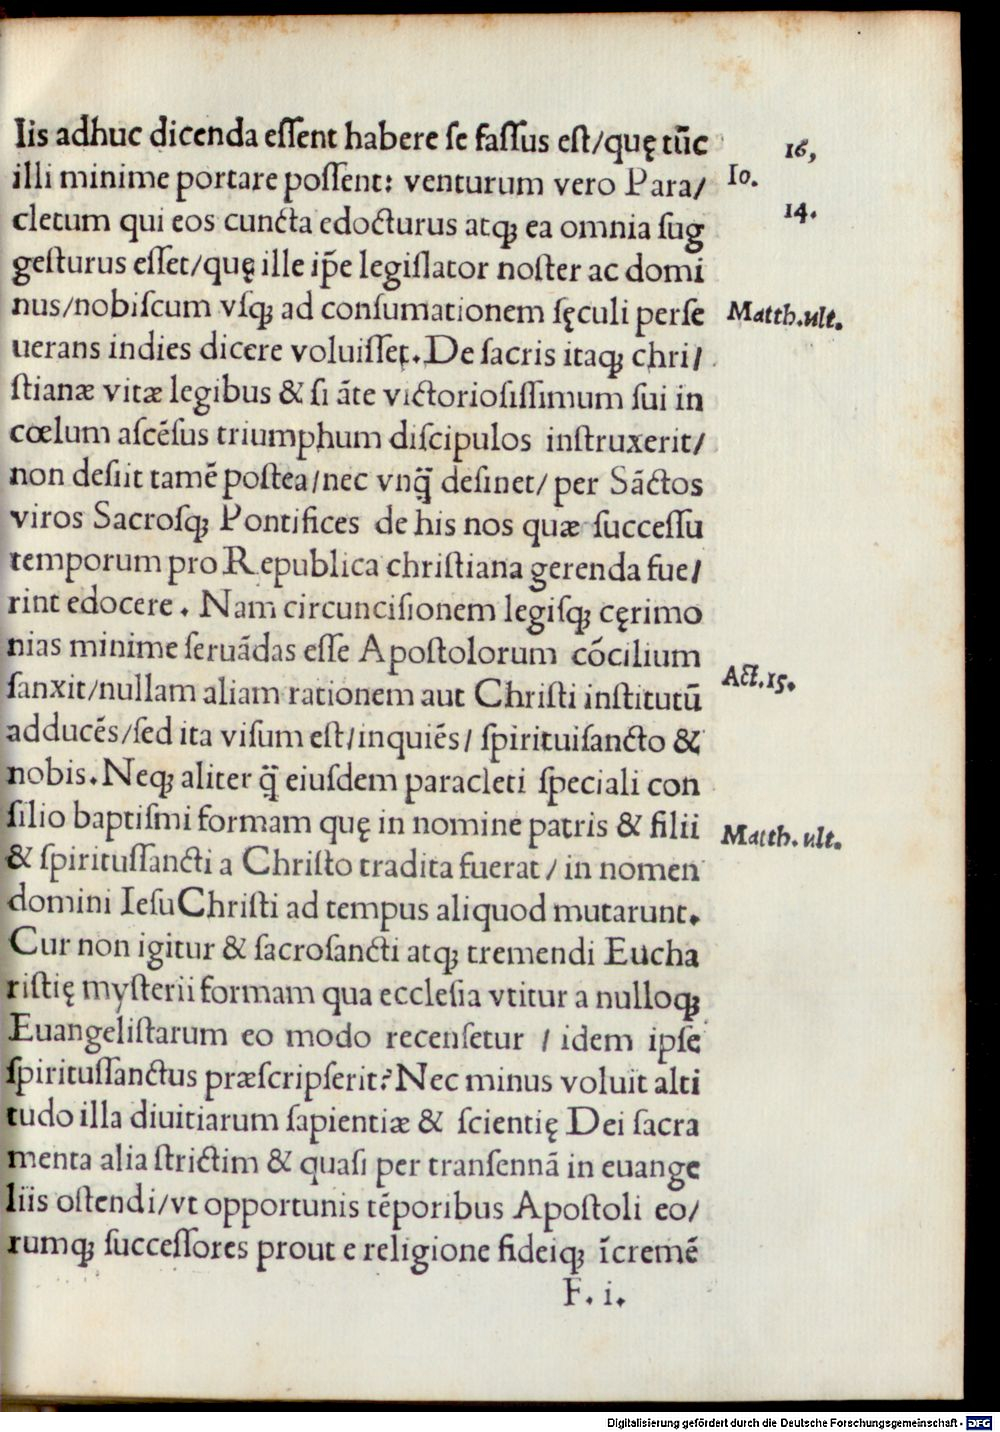 Iis adhuc dicenda eſſent habere ſe faſſus eſt/quę tūc
illi minime portare poſſent: venturum vero Para/
cletum qui eos cuncta edocturus atqꝫ ea omnia ſug
geſturus eſſet/quę ille ip̄e legiſlator noſter ac domi
nus/nobiſcum vſqꝫ ad conſumationem ſęculi perſe
uerans indies dicere voluiſſet.De ſacris itaqꝫ chri/
ſtianæ vitæ legibus & ſi āte victorioſiſſimum ſui in
cœlum aſcēſus triumphum diſcipulos inſtruxerit/
non deſiit tamē poſtea/nec vnq̄ deſinet/ per Sāctos
viros Sacroſqꝫ Pontifices de his nos quæ ſucceſſu
temporum pro Republica chriſtiana gerenda fue/
rint edocere. Nam circunciſionem legiſqꝫ cęrimo
nias minime ſeruādas eſſe Apoſtolorum cōcilium
ſanxit/nullam aliam rationem aut Chriſti inſtitutū
adducēs/ſed ita viſum eſt/inquiēs/ ſpirituiſancto &
nobis.Neqꝫ aliter q̄ eiuſdem paracleti ſpeciali con
ſilio baptiſmi formam quę in nomine patris & filii
& ſpirituſſancti a Chriſto tradita fuerat/ in nomen
domini IeſuChriſti ad tempus aliquod mutarunt.
Cur non igitur & ſacroſancti atqꝫ tremendi Eucha
riſtię myſterii formam qua eccleſia vtitur a nulloqꝫ
Euangeliſtarum eo modo recenſetur / idem ipſe
ſpirituſſanctus præſcripſerit?Nec minus voluit alti
tudo illa diuitiarum ſapientiæ & ſcientię Dei ſacra
menta alia ſtrictim & quaſi per tranſennā in euange
liis oſtendi/vt opportunis tēporibus Apoſtoli eo/
rumqꝫ ſucceſſores prout e religione fideiqꝫ īcremē
F. i.
16,
Io.
14.
Matth.ult.
Act.15.
Matth.ult.
Digitalisierung gefördert durch die Deutsche Forschungsgemeinschaft - DFG